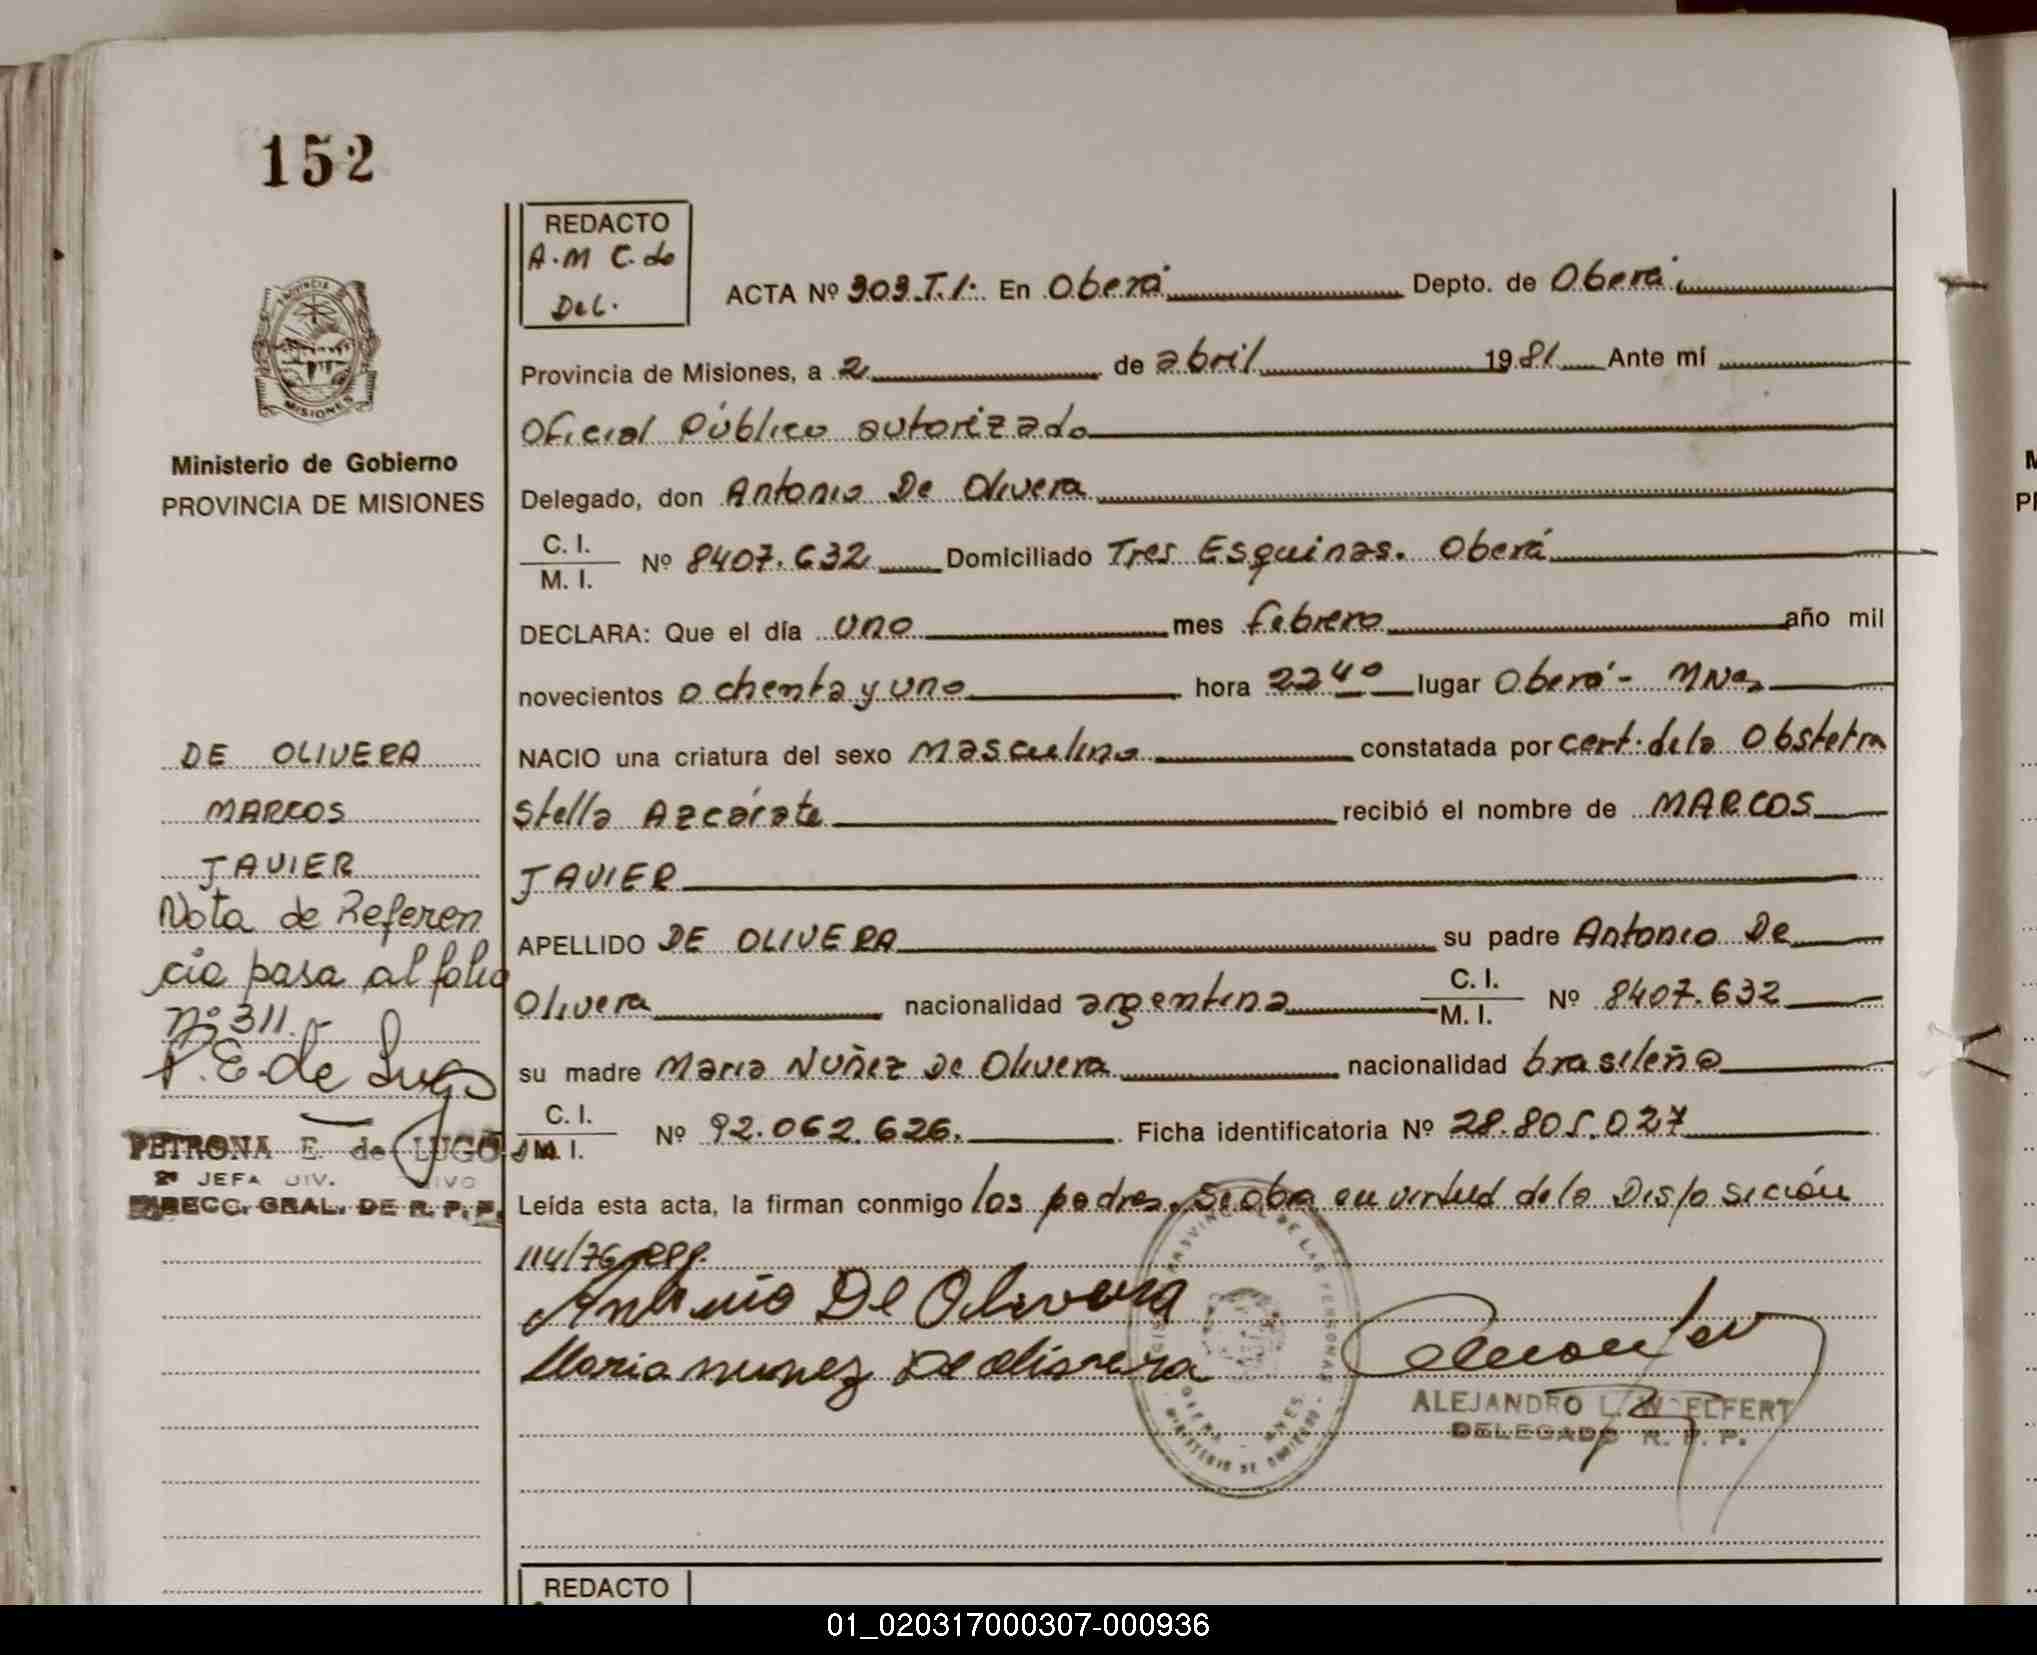 152
REDACTO
A.M C. de
Del.
ACTA Nº 303.T.1. En Oberá Depto. de Oberá
Provincia de Misiones, a 2 de abril 1981 Ante mí
Oficial Público autorizado
Delegado, don Antonio De Olivera
C. I.
M. I. Nº 8407.632 Domiciliado Tres Esquinas. Oberá
DECLARA: Que el día uno mes febrero año mil
novecientos ochenta y uno hora 22 40 lugar Oberá - Mnes
NACIO una criatura del sexo masculino constatada por cert. de la Obstetra
Stella Azcárate recibió el nombre de MARCOS
JAVIER
APELLIDO DE OLIVERA su padre Antonio De
Olivera nacionalidad argentina C. I. M. I. Nº 8407.632
su madre Maria Nuñez De Olivera nacionalidad brasileña
C. I.
M. I. Nº 92.062.626. Ficha identificatoria Nº 28.805.027
Leída esta acta, la firman conmigo los padres. Se labra en virtud de la Disposición
114/76 RPP.
Antonio De Olivera
Maria nunez De olivera
ALEJANDRO L. WOELFERT
DELEGADO R. P. P.
PROVINCIAL DE LAS PERSONAS
MINISTERIO DE GOBIERNO
PROVINCIA
MISIONES
Ministerio de Gobierno
PROVINCIA DE MISIONES
DE OLIVERA
MARCOS
JAVIER
Nota de Referen
cia pasa al folio
nº 311.
P. E. de Lugo
PETRONA E. de LUGO
2ª JEFA DIV.
DIRECC. GRAL. DE R. P. P.
REDACTO
01_020317000307-000936